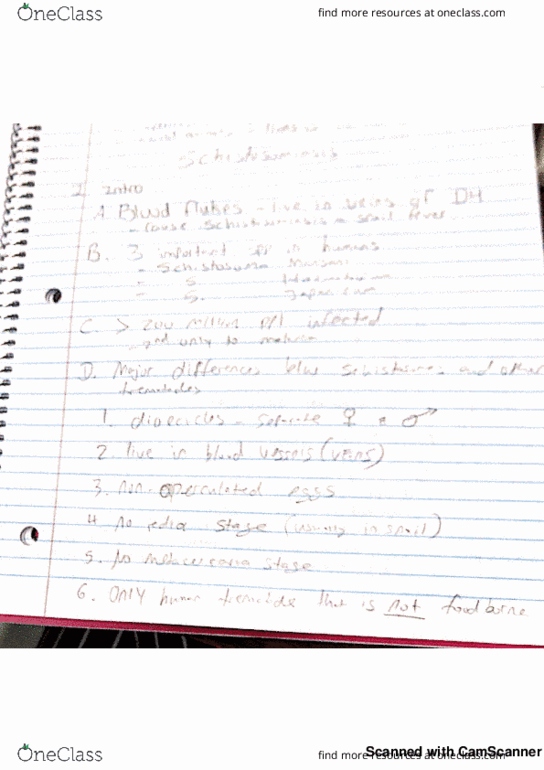 OneClass
find more resources at oneclass.com
Schistosomiasis
I Intro
A. Blood flukes - live in veins of DH
- cause schistosomiasis = snail fever
B. 3 important sp in humans
- Schistosoma Mansoni
- S.
- S. Japonicum
C. > 200 million ppl infected
2nd only to malaria
D. Major differences btw schistosomes and other
trematodes
1. dioecicles - separate ♀ & ♂
2. live in blood vessels (veins)
3. non-operculated eggs
4. No redia stage (usually in snail)
5. No metacercaria stage
6. ONLY human trematode that is not foodborne
OneClass
find more resources at oneclass.com
Scanned with CamScanner